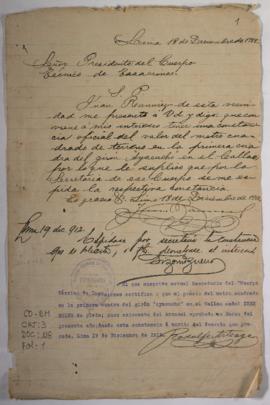 1
Lima 18 de Diciembre de 1912.
Señor Presidente del Cuerpo
Técnico de Tasaciones.
S. P.
Juan de esta vecin
dad me presento a Ud y digo: que con
viene a mis intereses tener una constan
cia oficial del valor del metro cua
drado de terreno en la primera cua
dra del giron Ayacucho en el Callao
por lo que le suplico que por la
Secretaria de ese Cuerpo se me es
pida la respectiva constancia.
Es gracia Lima 18 de Diciembre de 1912
Lima 19 dic 912.
Expídase por secretaria la constancia
que se solicita
El que suscribe actual Secretario del Cuerpo
Técnico de Tasaciones certifica: que el precio del metro cuadrado
en la primera cuadra del girón "Ayacucho" en el Callao es de TRES
SOLES de plata;
presente año, dando esta constancia á mérito del decreto que pre-
cede. Lima 19 de Diciembre de 1912
CO-BM
CAT: 3
Fol: 1